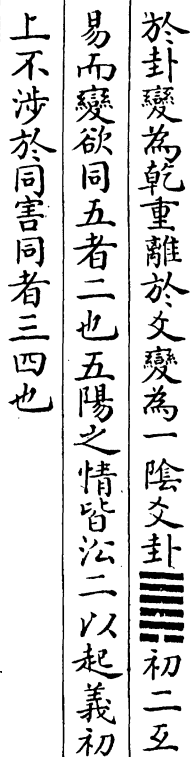 於卦變為乾重離於爻變為一陰爻卦䷫初二互
易而變欲同五者二也五陽之情皆㳂二以起義初
上不涉於同害同者三四也